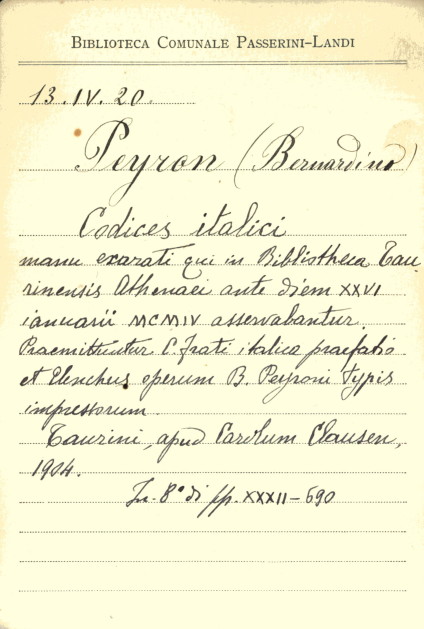 BIBLIOTECA COMUNALE PASSERINI-LANDI
13.IV.20.
Peyron (Bernardino)
Codices italici
manu exarati qui in Bibliotheca Tau
rinensis Athenaei ante diem XXVI
ianuarii MCMIV asservabantur.
Praemittuntur C. Frati italica praefatio
et Elenchus operum B. Peyroni typis
impressorum.
Taurini, apud Carolum Clausen,
1904.
In-8° di pp. XXXII-690